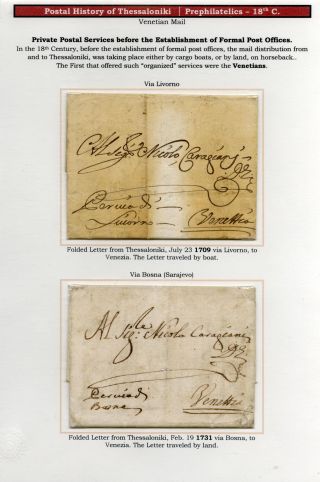 Postal History of Thessaloniki | Prephilatelics – 18th C.
Venetian Mail
Private Postal Services before the Establishment of Formal Post Offices.
In the 18th Century, before the establishment of formal post offices, the mail distribution from
and to Thessaloniki, was taking place either by cargo boats, or by land, on horseback..
The First that offered such "organized" services were the Venetians.
Via Livorno
Al Sigr Nicolo Caragiani
Per via di
Livorno
Venettia
Folded Letter from Thessaloniki, July 23 1709 via Livorno, to
Venezia. The Letter traveled by boat.
Via Bosna (Sarajevo)
Al Sigle Nicola Caragiani
Per via di
Bosna
Venettia
Folded Letter from Thessaloniki, Feb. 19 1731 via Bosna, to
Venezia. The Letter traveled by land.